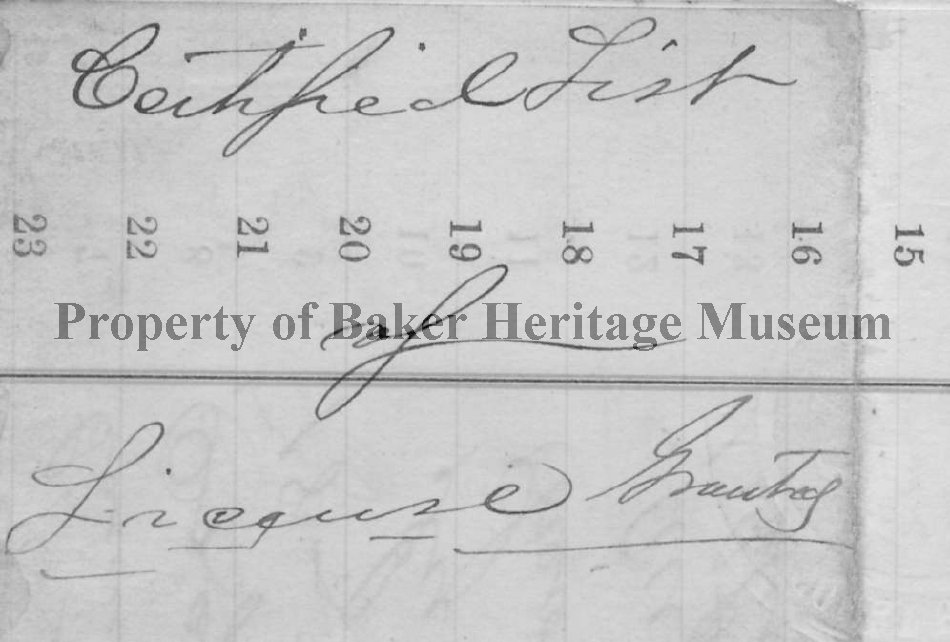 Certified List
23 22 21 20 19 18 17 16 15
of
Property of Baker Heritage Museum
License Granted